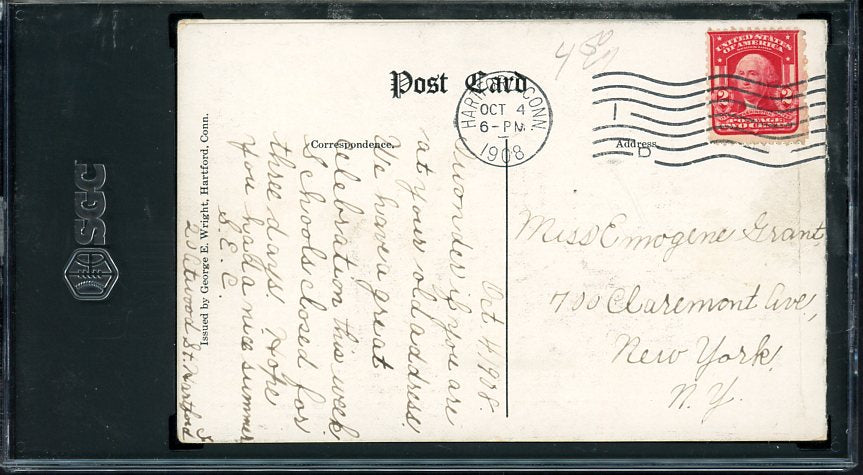 SGC
480
Post Card
HARTFORD, CONN.
OCT 4
6-PM
1908
1
D
UNITED STATES
OF AMERICA
2 2
POSTAGE
TWO CENTS
Correspondence.
Address
Issued by George E. Wright, Hartford, Conn.
Oct 4/1908.
I wonder if you are
at your old address.
We have a great
celebration this week
Schools closed for
three days. Hope
you had a nice summer
S. E. C.
20 Atwood St. Hartford
Miss Emogene Grant,
700 Claremont Ave,
New York
N.Y.